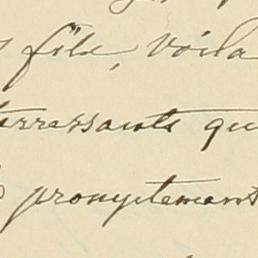 fête, voila
terressants qu
promptement